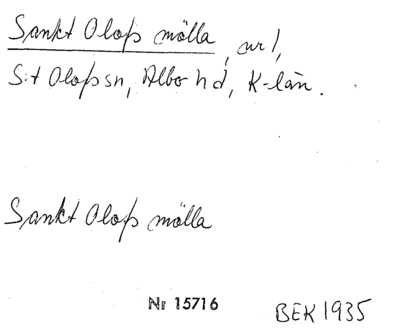 Sankt Olofs mölla, avs1,
S:t Olofs sn, Albo hd, K-län.
Sankt Olofs mölla
Nr 15716
BEK 1935